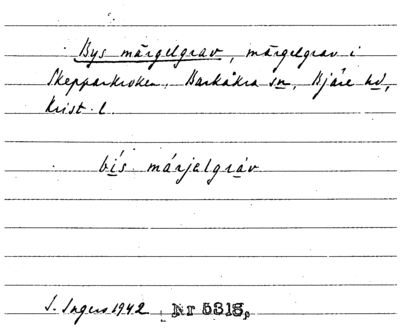 Bys märgelgrav, märgelgrav i
Skepparkroken, Barkåkra sn, Bjäre hd,
Krist. l.
bís márjelgráv
S. Ingers 1942 Nr 5318,